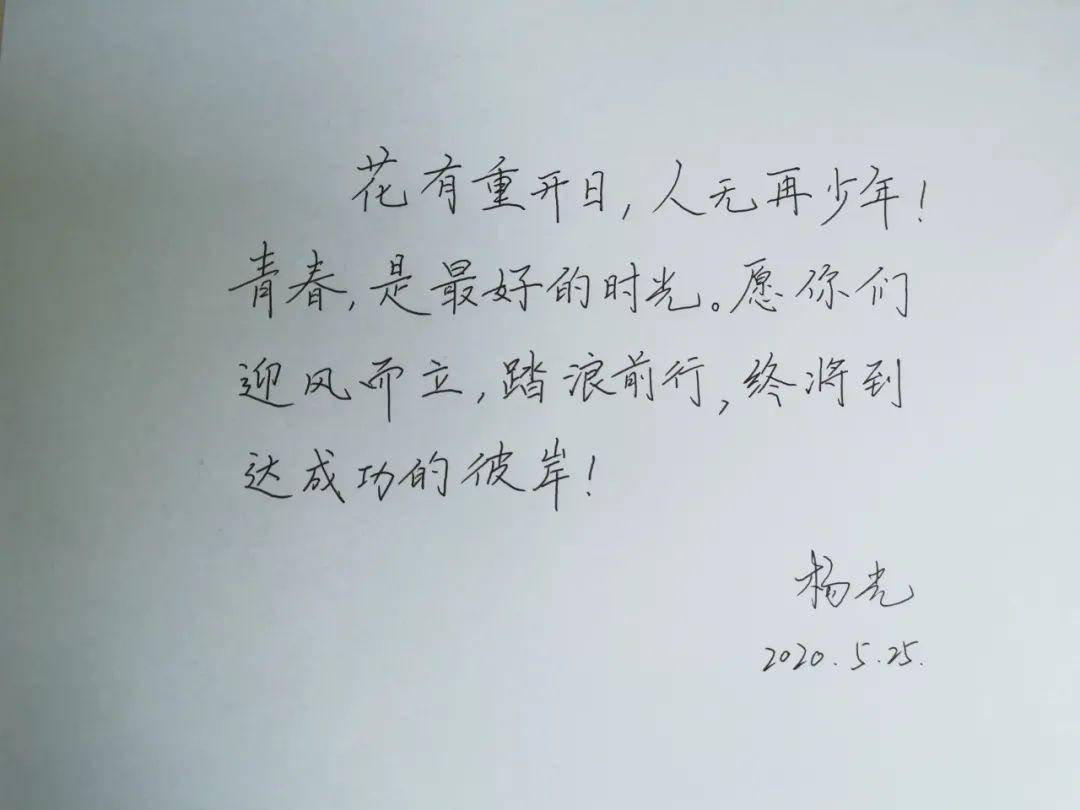 花有重开日,人无再少年!
青春,是最好的时光。愿你们
迎风而立,踏浪前行,终将到
达成功的彼岸!
杨光
2020.5.25.